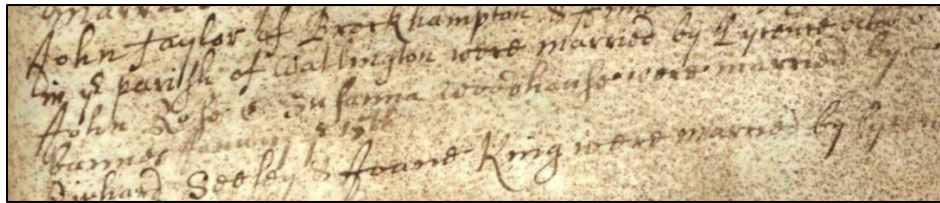 John Taylor of Brockhampton &
in ye parish of Wallington were married by Lycence
John Rose & Susanna Woodhause were married by
bannes January ye 15th
Richard Seeley & Joane King were married by